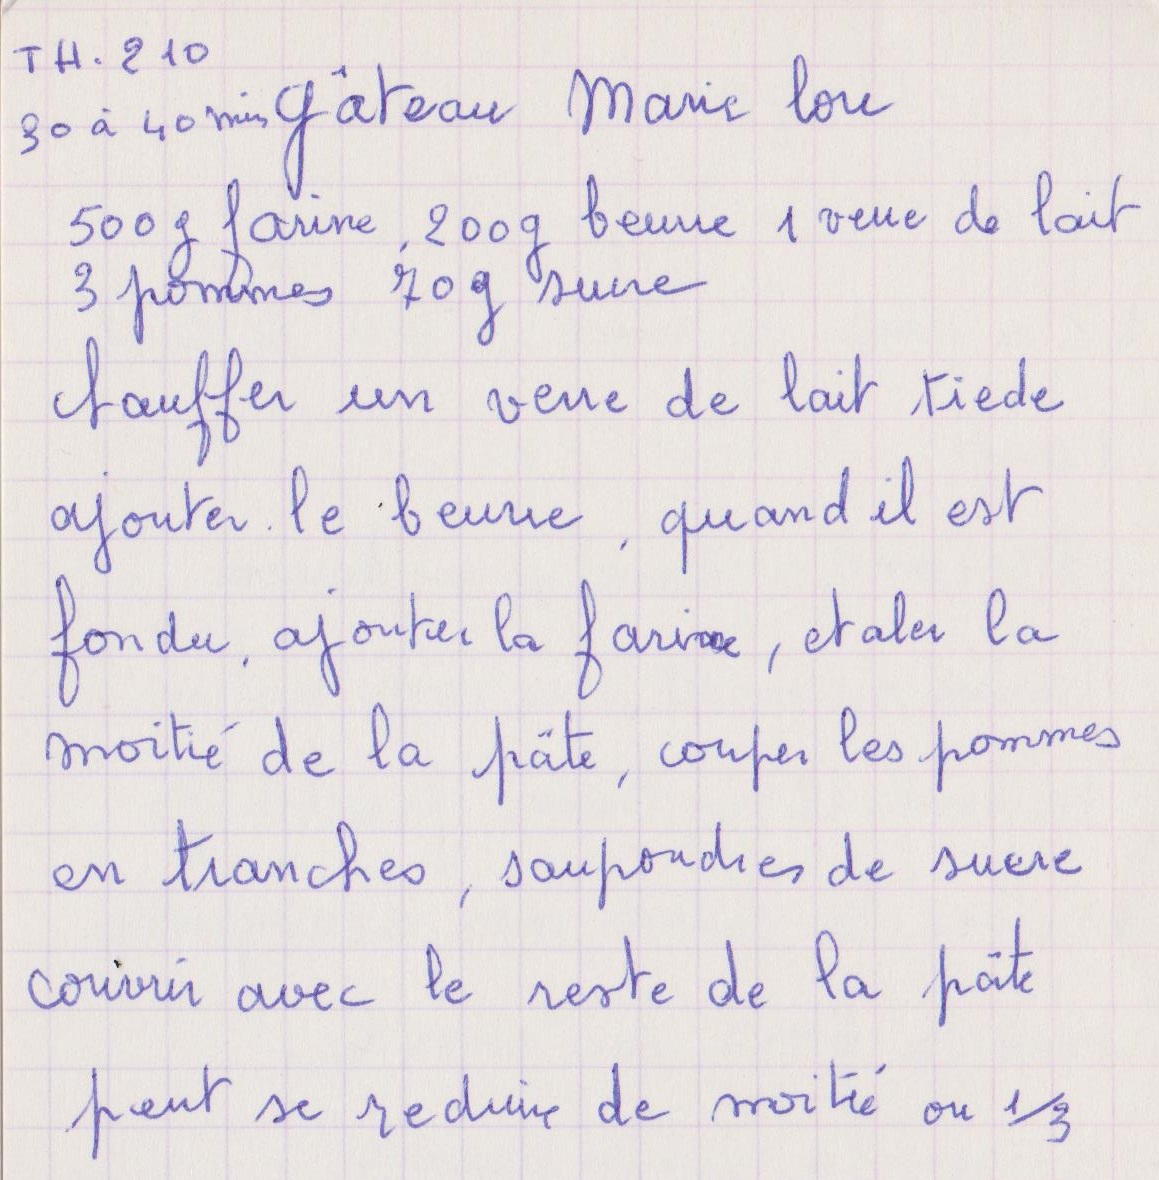 TH. 210
30 à 40 min Gâteau Marie lou
500g farine, 200g beurre 1 verre de lait
3 pommes 70g sucre
chauffer un verre de lait tiede
ajouter le beurre, quand il est
fondu, ajouter la farine, etaler la
moitié de la pâte, couper les pommes
en tranches, saupoudrer de sucre
couvrir avec le reste de la pâte
peut se reduire de moitié ou 1/3